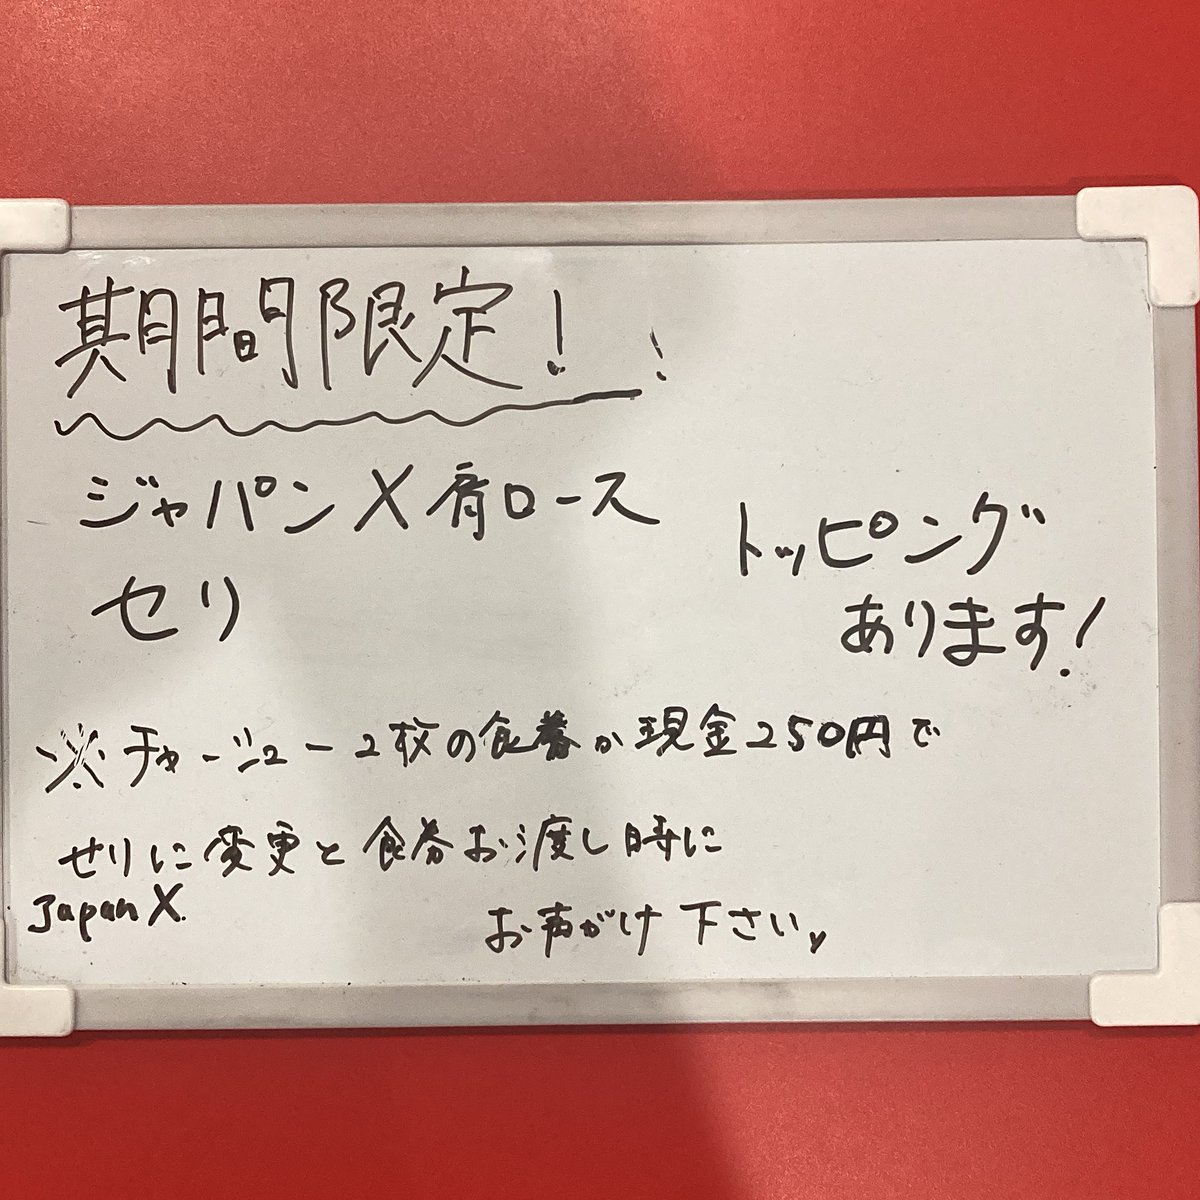 期間限定!
ジャパンX肩ロース
セリ
トッピング
あります!
※チャーシュー2枚の食券か現金250円で
せりに変更と食券お渡し時に
Japan X.
お声がけ下さい